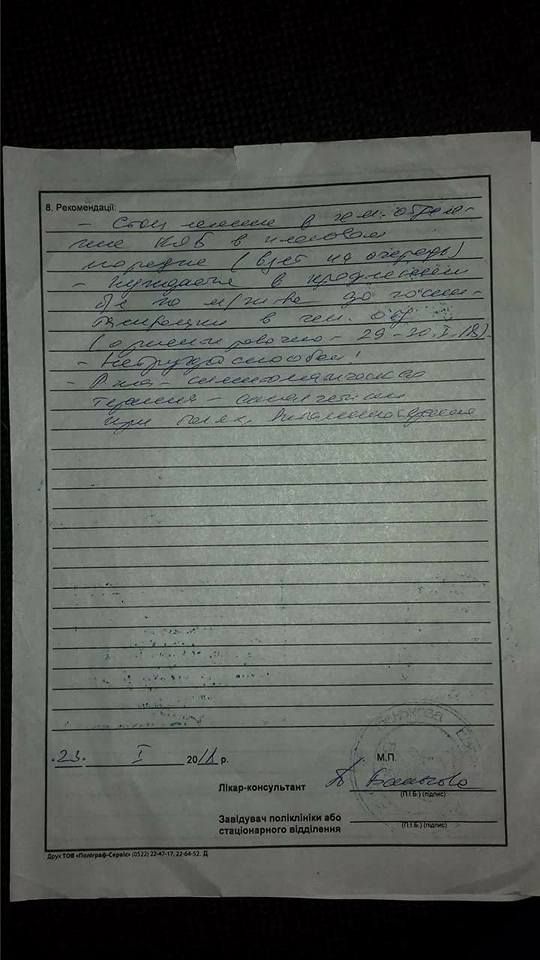 8. Рекомендації:
- Стац. лечение в гем. отделе-
ние КОБ в плановом
порядке (взят на очередь)
- Нуждается в продлении
б/л по м/ж до госпи-
тализации в гем. отд
(ориентировочно - 29-30.I.18).
- Нетрудоспособен!
симптоматическая
терапия -
при болях,
.23. I 2018 р.
М.П.
Лікар-консультант
(П.І.Б.) (підпис)
Завідувач поліклініки або
стаціонарного відділення
(П.І.Б.) (підпис)
Друк ТОВ «Поліграф-Сервіс» (0522) 22-47-17, 22-64-52. Д